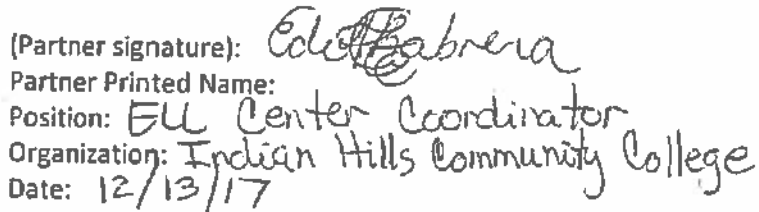 (Partner signature): Edith Cabrera
Partner Printed Name:
Position: ELL Center Coordinator
Organization: Indian Hills Community College
Date: 12/13/17